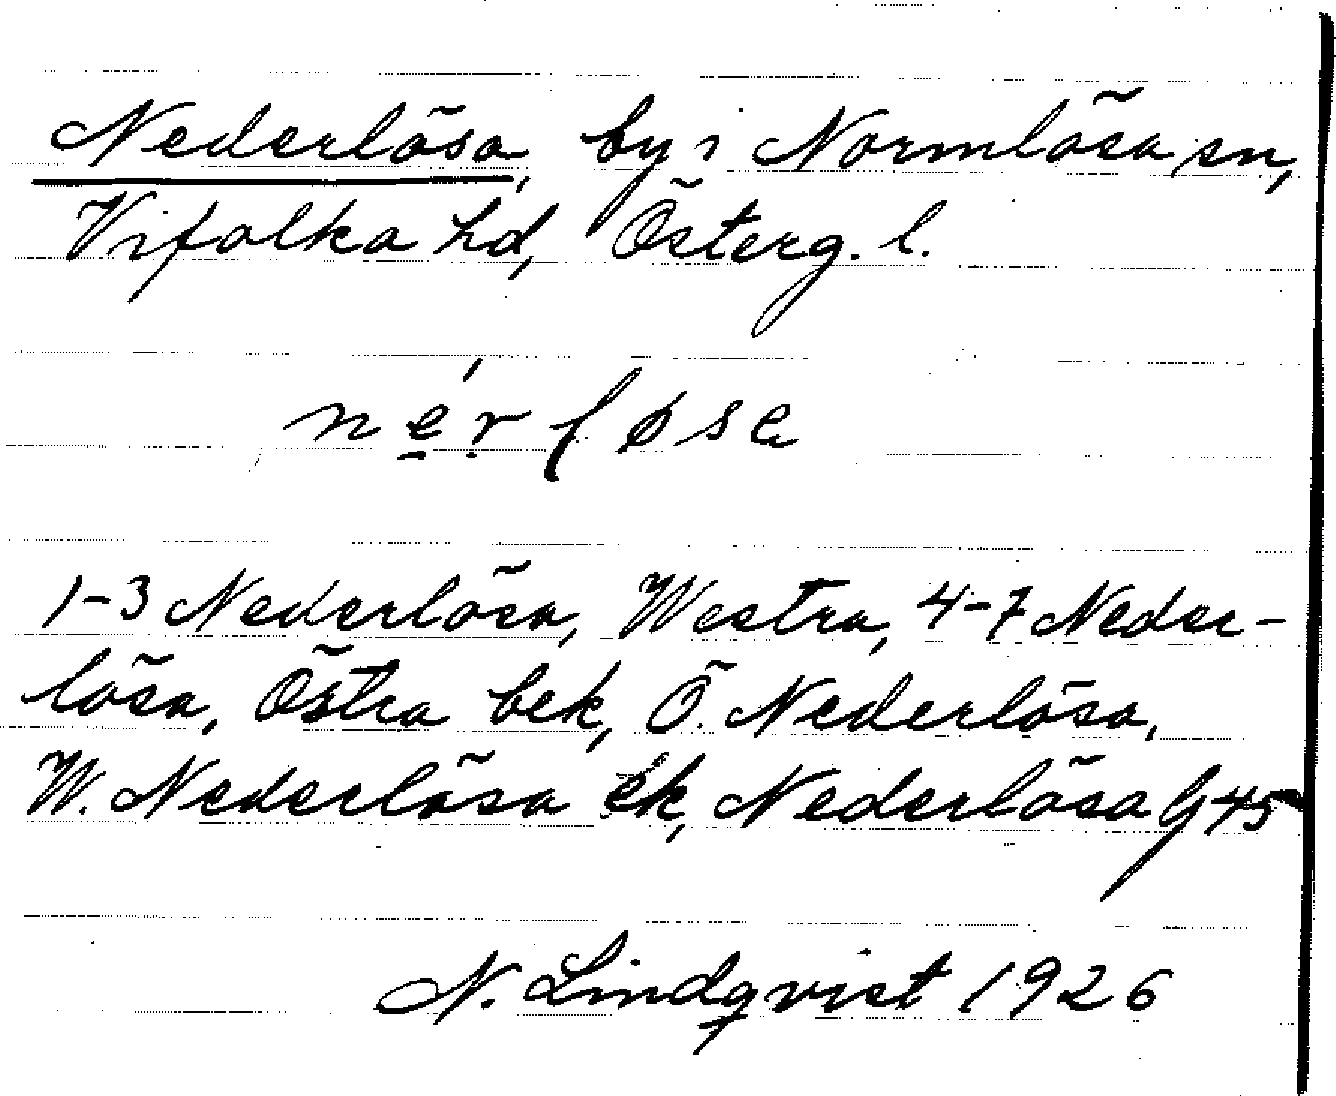 Nederlösa, by i Normlösa sn,
Vifolka hd, Österg. l.
nérløse
1-3 Nederlösa, Westra, 4-7 Neder-
lösa, Östra bek, Ö. Nederlösa,
W. Nederlösa ek, Nederlösa G45
N. Lindqvist 1926